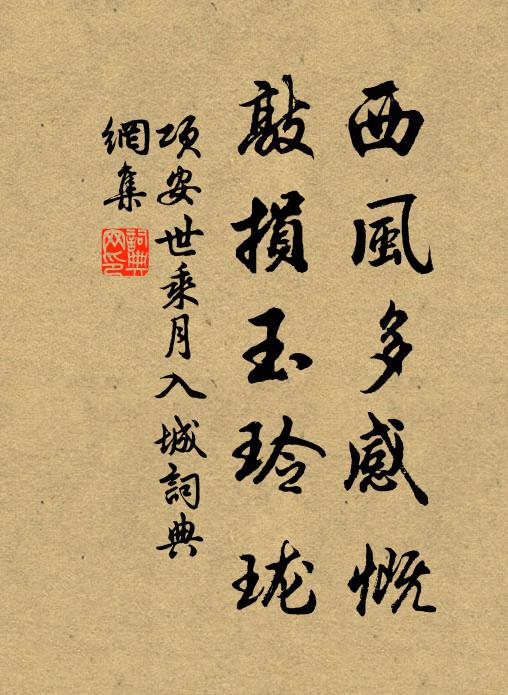 西風多感慨
敲損玉玲珑
項安世乘月入城詞典
網集
詞典
网印